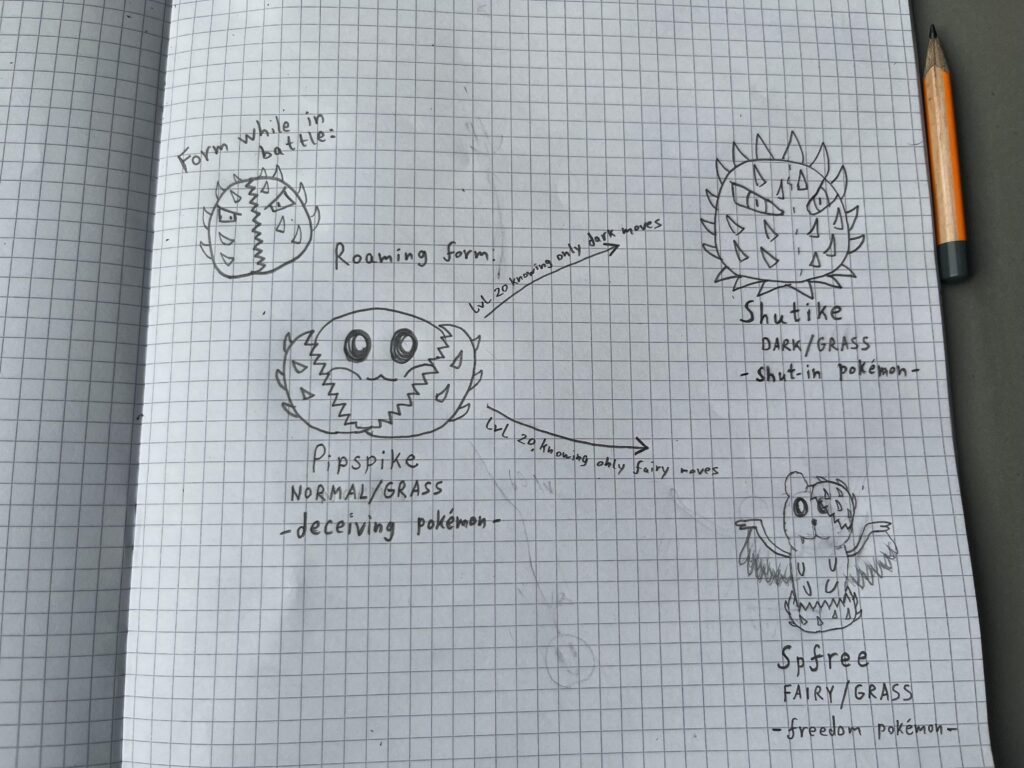 Form while in
battle:
Roaming form:
lvl 20 knowing only dark moves
Shutike
DARK/GRASS
-shut-in pokémon-
lvl 20 knowing only fairy moves
Pipspike
NORMAL/GRASS
-deceiving pokémon-
Spfree
FAIRY/GRASS
-freedom pokémon-